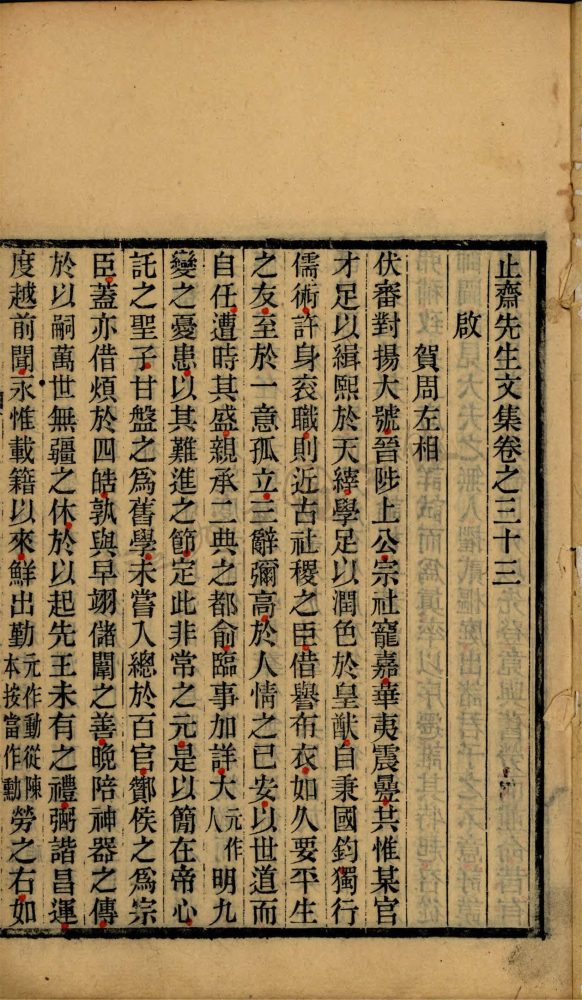 止齋先生文集卷之三十三
啟
賀周左相
伏審對揚大號晉陟上公宗社寵嘉華夷震疊共惟某官
才足以緝熙於天縡學足以潤色於皇猷自秉國鈞獨行
儒術許身衮職則近古社稷之臣借譽布衣如久要平生
之友至於一意孤立三辭彌高於人情之已安以世道而
自任遭時其盛親承二典之都俞臨事加詳大元作人明九
變之憂患以其難進之節定此非常之元是以簡在帝心
託之聖子甘盤之爲舊學未嘗入總於百官酇侯之爲宗
臣蓋亦借煩於四皓孰與早翊儲闈之善晚陪神器之傳
於以嗣萬世無疆之休於以起先王未有之禮弼諧昌運
度越前聞永惟載籍以來鮮出勤元作動從陳本按當作勳勞之右如